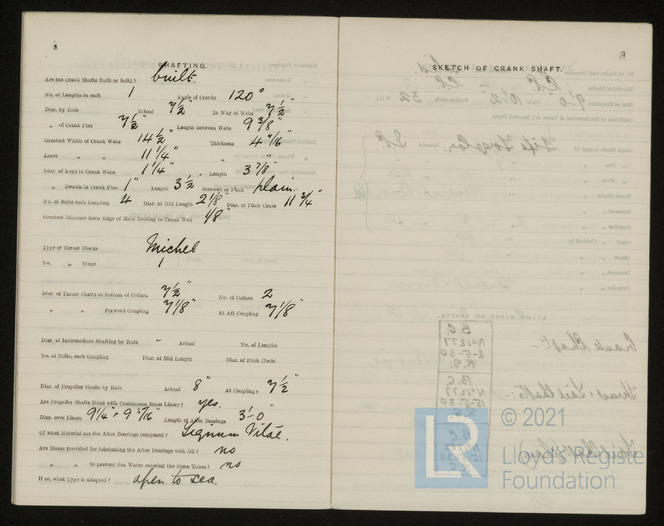 8
SHAFTING.
Are the Crank Shafts Built or Solid? built.
No. of Lengths in each 1 Angle of Cranks 120°
Diar. by Rule Actual 7½" In Way of Webs 7½"
" of Crank Pins 7½" Length between Webs 9 3/8"
Greatest Width of Crank Webs 14½ Thickness 4 "/16"
Least " " 11 ¼" "
Diar. of Keys in Crank Webs 1 ¼" Length 3 7/8"
" Dowels in Crank Pins 1" Length 3½" Screwed or Plain plain.
No. of Bolts each Coupling 4 Diar. at Mid Length 2 1/8" Diar. of Pitch Circle 11 ¾"
Greatest Distance from Edge of Main Bearing to Crank Web 1/8"
Type of Thrust Blocks Michel
No. " Rings 1
Diar. of Thrust Shafts at bottom of Collars 7½" No. of Collars 2
" " Forward Coupling 7 1/8" At Aft Coupling 7 1/8"
Diar. of Intermediate Shafting by Rule - Actual No. of Lengths
No. of Bolts, each Coupling Diar. at Mid Length Diar. of Pitch Circle
Diar. of Propeller Shafts by Rule Actual 8" At Coupling 7½"
Are Propeller Shafts fitted with Continuous Brass Liners? yes.
Diar. over Liners 9¼" & 9 5/16" Length of After Bearings 3'-0"
Of what Material are the After Bearings composed? Lignum Vitae.
Are Means provided for lubricating the After Bearings with Oil? no
" " to prevent Sea Water entering the Stern Tubes? no
If so, what Type is adopted? open to sea.
9
SKETCH OF CRANK SHAFT.
© 2021
LR
Lloyd's Register
Foundation